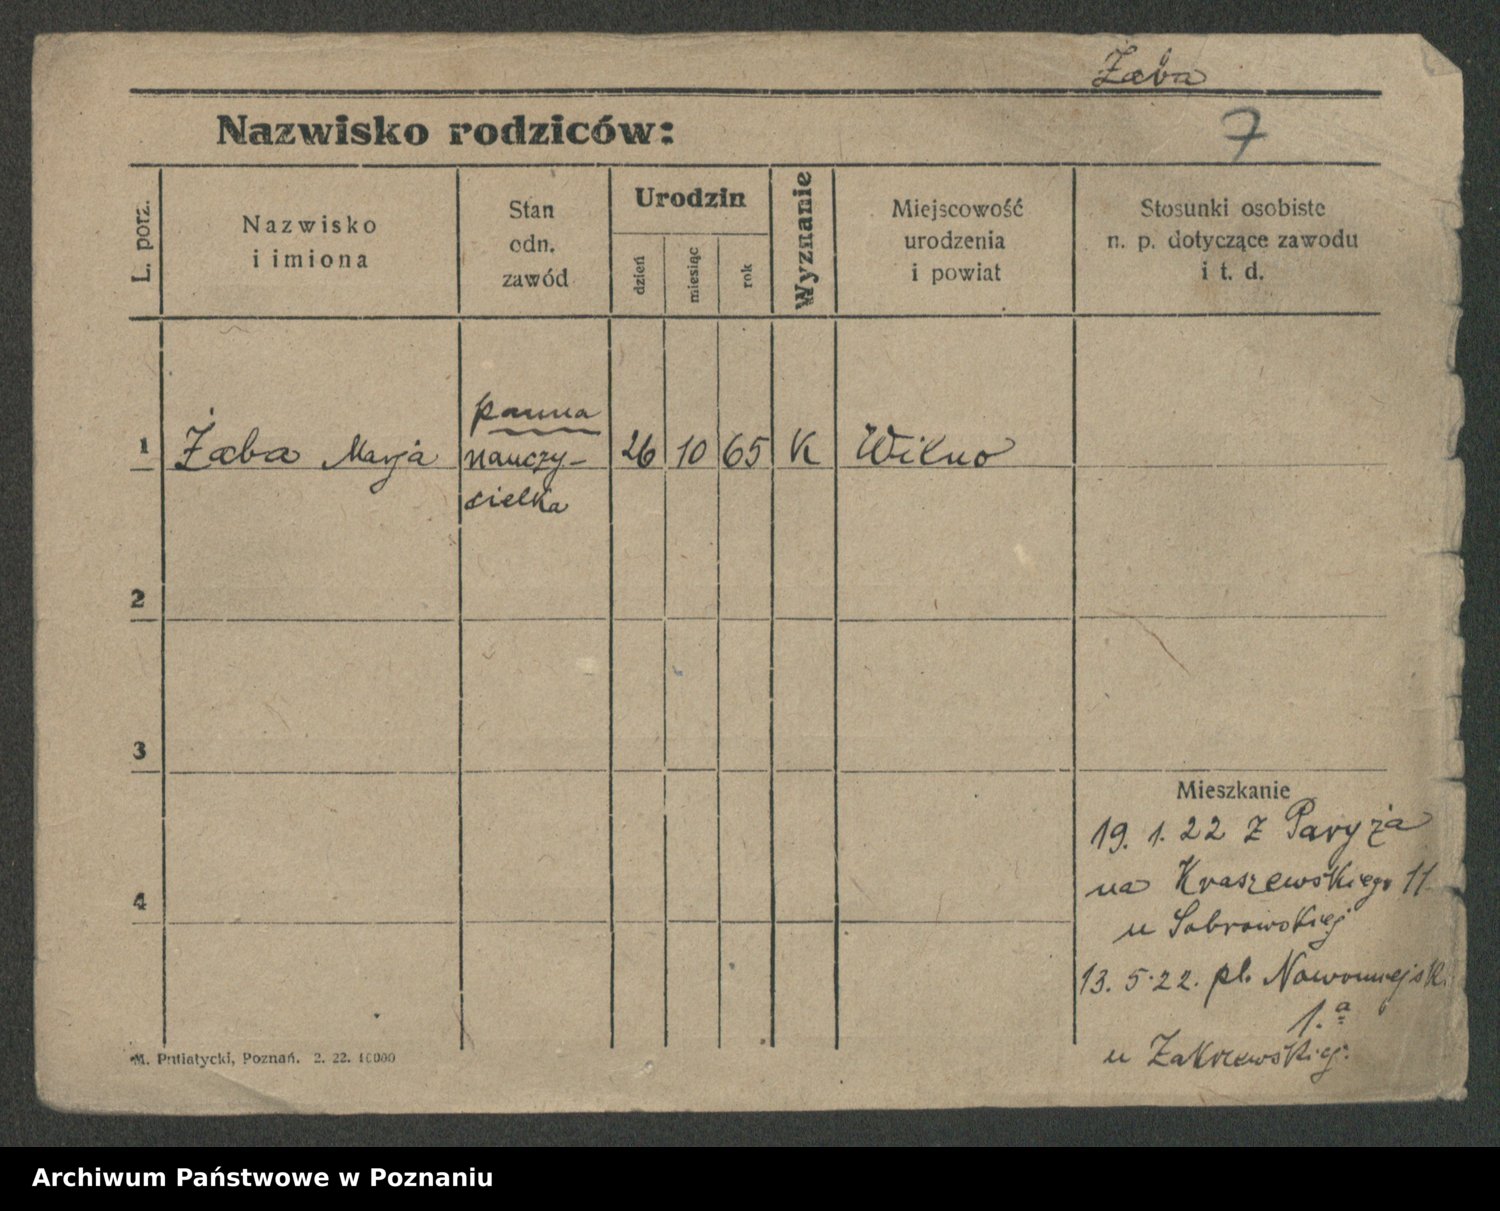 Żaba
Nazwisko rodziców:
7
L. porz.
Nazwisko
i imiona
Stan
odn.
zawód
Urodzin
dzień
miesiąc
rok
Wyznanie
Miejscowość
urodzenia
i powiat
Stosunki osobiste
n. p. dotyczące zawodu
i t. d.
panna
1 Żaba Marja nauczy- 26 10 65 K Wilno
cielka
2
3
Mieszkanie
19. 1. 22 z Paryża
na Kraszewskiego 11
4
u Sobrowskiej
13. 5. 22. pl. Nowomiejski
1.a
u Zakrzewskiej.
M. Putiatycki, Poznań. 2. 22. 10000
Archiwum Państwowe w Poznaniu